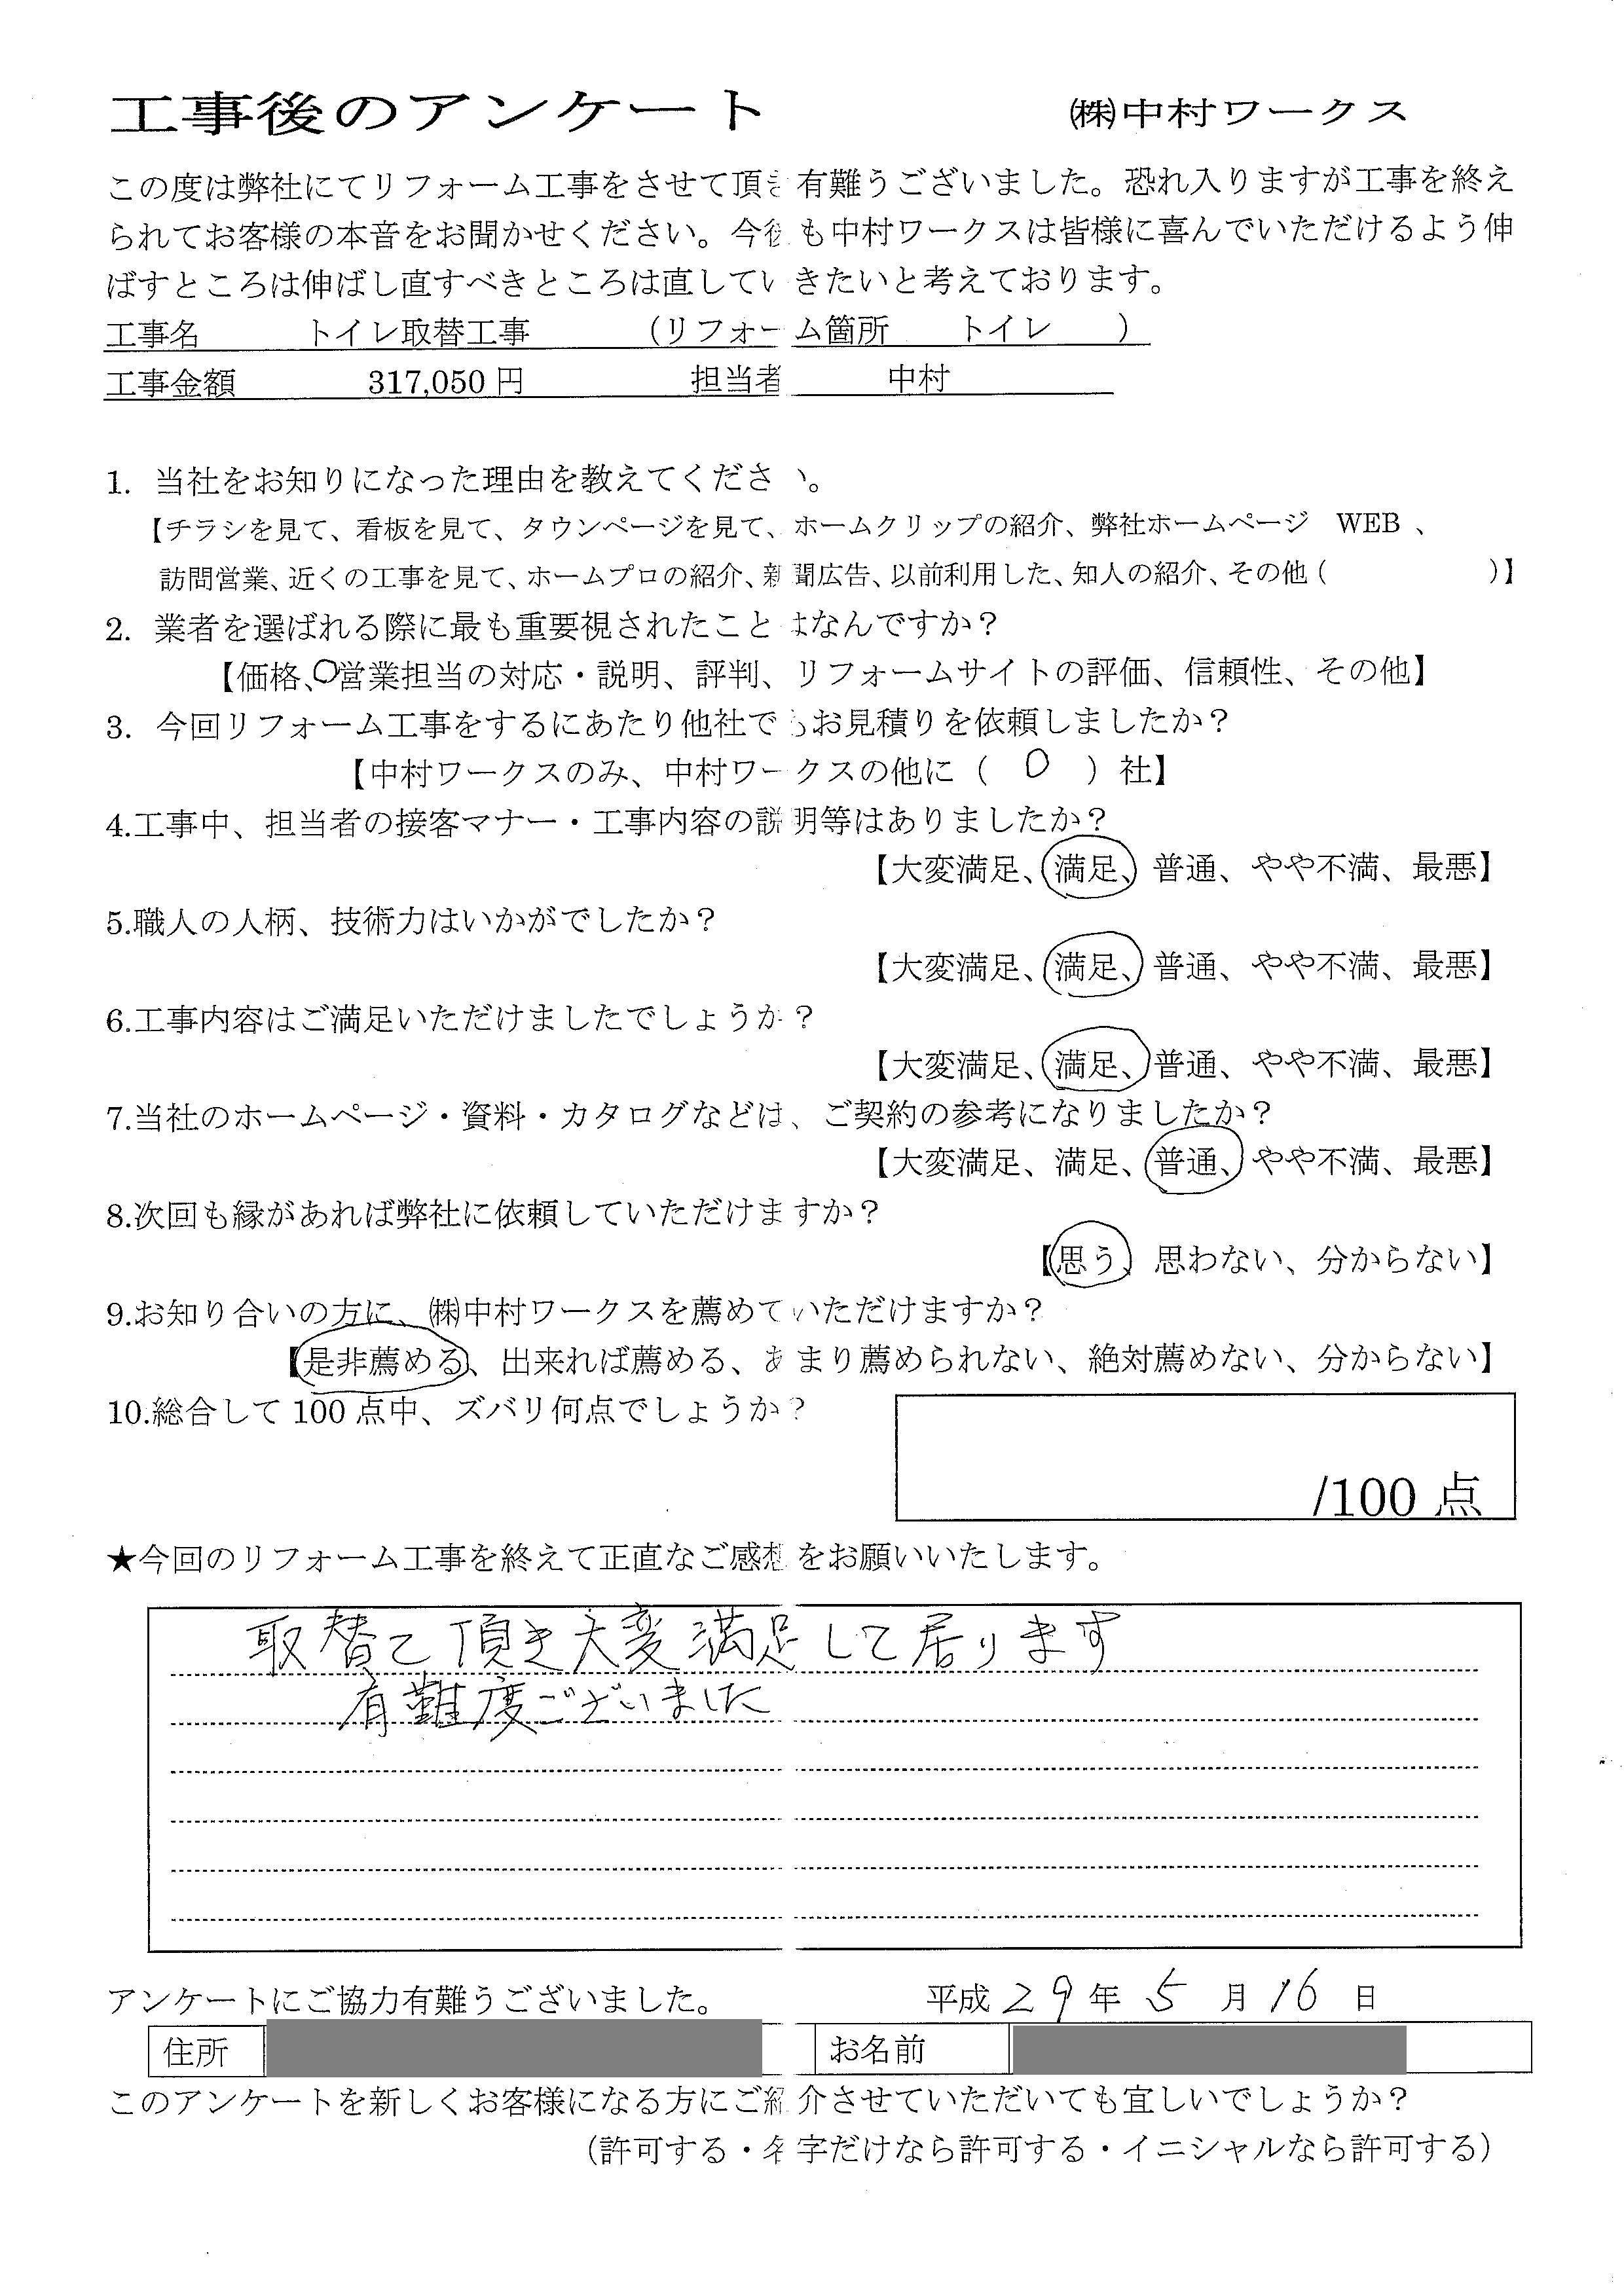 工事後のアンケート ㈱中村ワークス
この度は弊社にてリフォーム工事をさせて頂き有難うございました。恐れ入りますが工事を終え
られてお客様の本音をお聞かせください。今後も中村ワークスは皆様に喜んでいただけるよう伸
ばすところは伸ばし直すべきところは直していきたいと考えております。
工事名 トイレ取替工事 (リフォーム箇所 トイレ )
工事金額 317,050円 担当者 中村
1. 当社をお知りになった理由を教えてください。
【チラシを見て、看板を見て、タウンページを見て、ホームクリップの紹介、弊社ホームページ WEB 、
訪問営業、近くの工事を見て、ホームプロの紹介、新聞広告、以前利用した、知人の紹介、その他( )】
2. 業者を選ばれる際に最も重要視されたことはなんですか？
【価格、○営業担当の対応・説明、評判、リフォームサイトの評価、信頼性、その他】
3. 今回リフォーム工事をするにあたり他社でもお見積りを依頼しましたか？
【中村ワークスのみ、中村ワークスの他に ( 0 ) 社】
4.工事中、担当者の接客マナー・工事内容の説明等はありましたか？
【大変満足、満足、普通、やや不満、最悪】
5.職人の人柄、技術力はいかがでしたか？
【大変満足、満足、普通、やや不満、最悪】
6.工事内容はご満足いただけましたでしょうか？
【大変満足、満足、普通、やや不満、最悪】
7.当社のホームページ・資料・カタログなどは、ご契約の参考になりましたか？
【大変満足、満足、普通、やや不満、最悪】
8.次回も縁があれば弊社に依頼していただけますか？
【思う、思わない、分からない】
9.お知り合いの方に、㈱中村ワークスを薦めていただけますか？
【是非薦める、出来れば薦める、あまり薦められない、絶対薦めない、分からない】
10.総合して 100 点中、ズバリ何点でしょうか？
/100 点
★今回のリフォーム工事を終えて正直なご感想をお願いいたします。
取替て頂き大変満足して居ります
有難度ございました
アンケートにご協力有難うございました。 平成 29 年 5 月 16 日
住所 お名前
このアンケートを新しくお客様になる方にご紹介させていただいても宜しいでしょうか？
(許可する・名字だけなら許可する・イニシャルなら許可する)